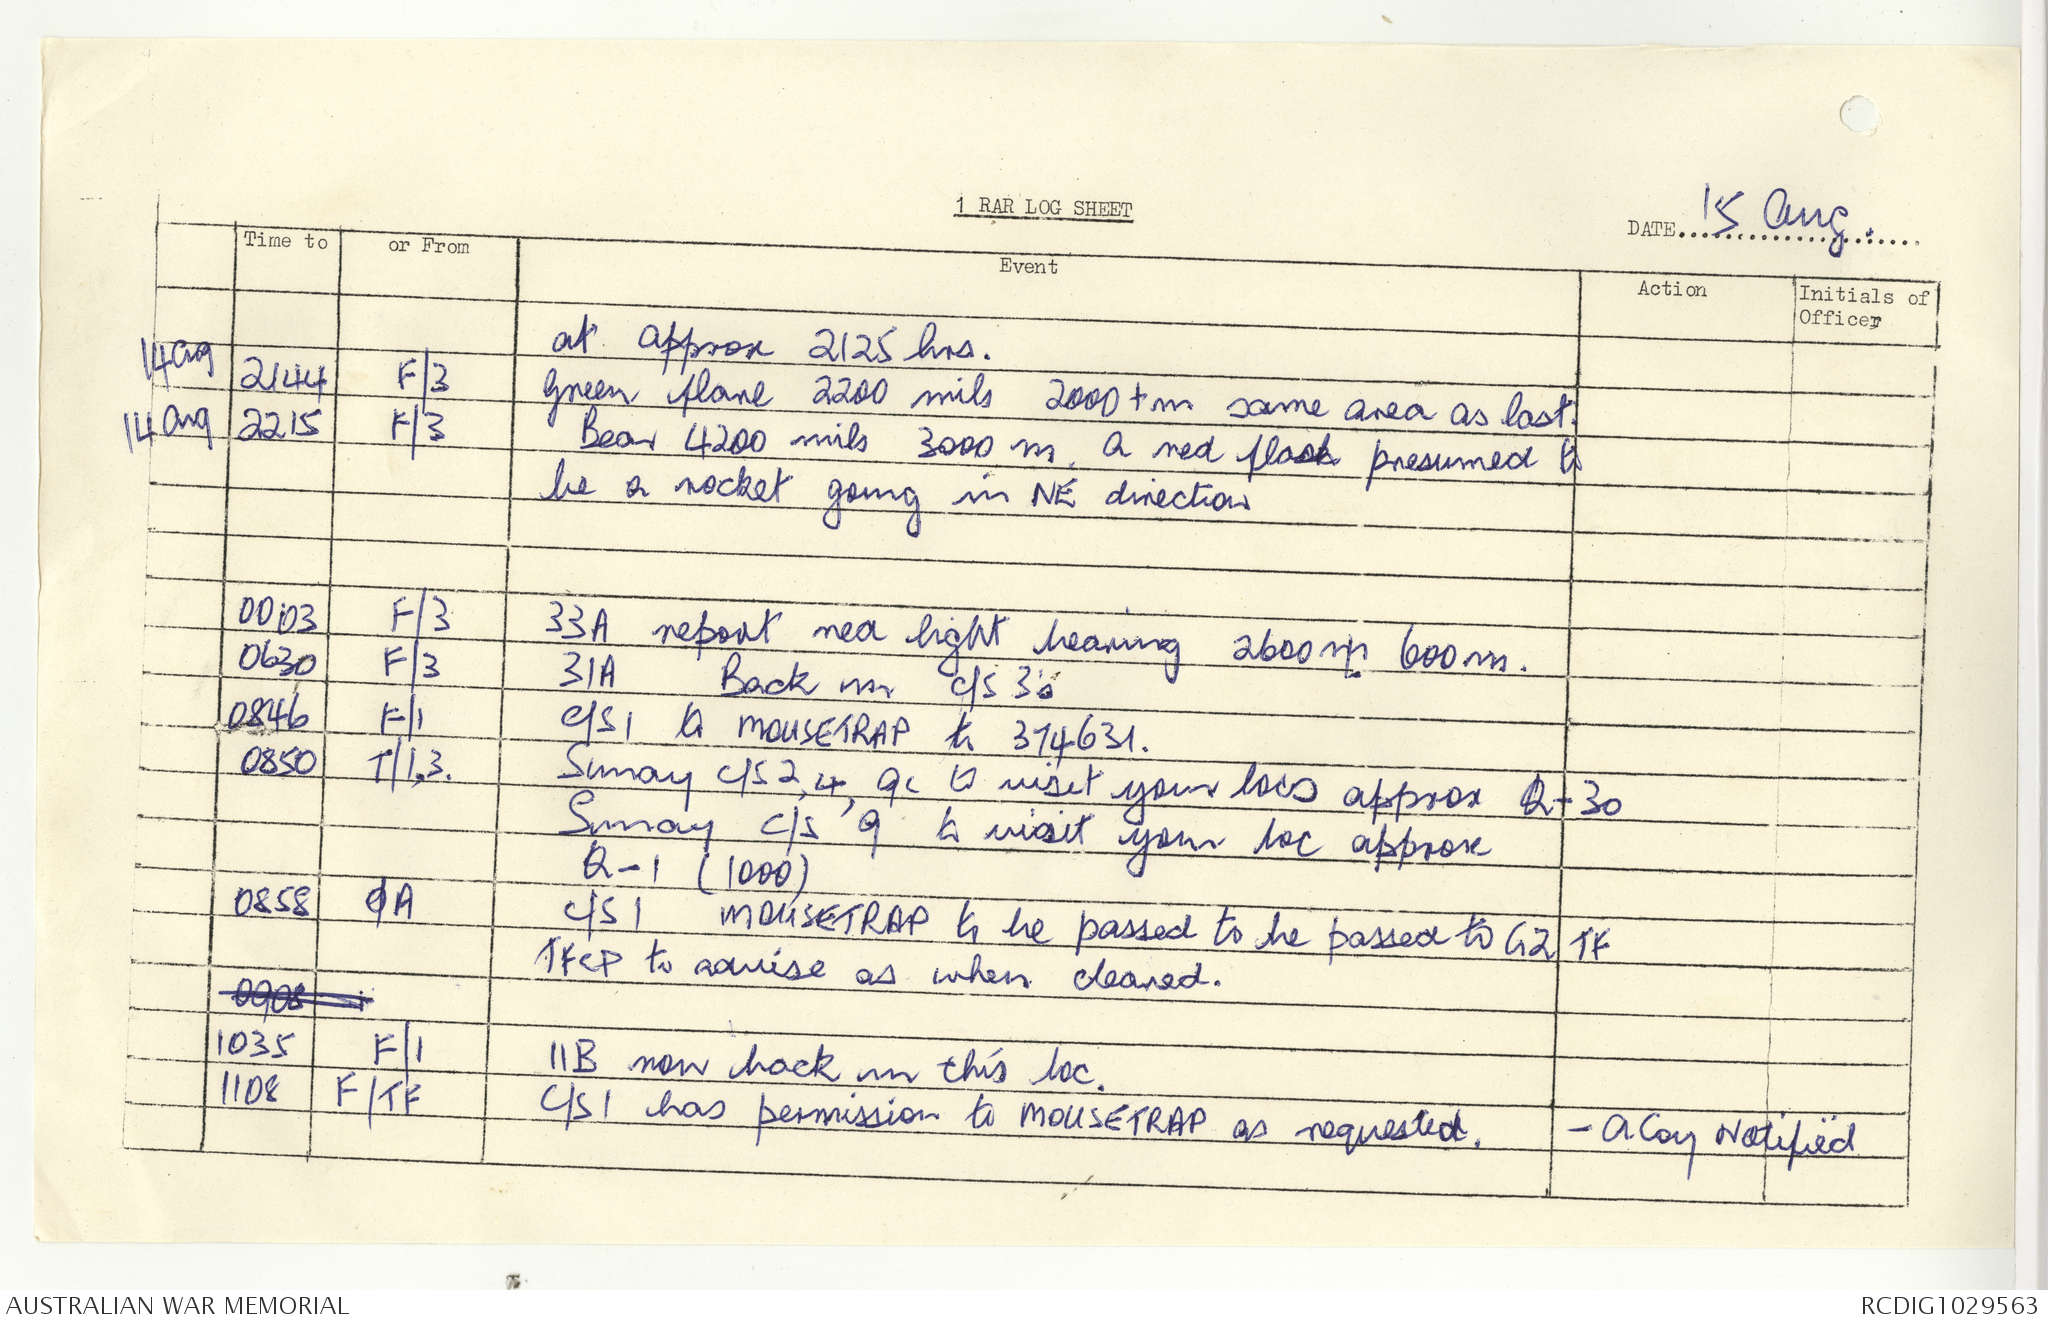 1 RAR LOG SHEET
DATE 15 Aug.
Time to or From Event Action Initials of Officer
at approx 2125 hrs.
14 Aug 2144 F/3 Green flare 2200 mils 2000+m same area as last.
14 Aug 2215 F/3 Bear 4200 mils 3000 m. A red flash presumed to
be a rocket going in NE direction
0003 F/3 33A report red light bearing 2600 m 600 m.
0630 F/3 31A Back in c/s 3's
0846 F/1 C/S 1 to MOUSETRAP to 374631.
0850 T/1,3. Sunray C/S 2, 4, 9c to visit your locs approx Q-30
Sunray C/S 9 to visit your loc approx
Q-1 (1000)
0858 A C/S 1 MOUSETRAP to be passed to be passed to G2 TF
TFCP to advise as when cleared.
0908
1035 F/1 11B now back in this loc.
1108 F/TF C/S 1 has permission to MOUSETRAP as requested. - A Coy Notified
AUSTRALIAN WAR MEMORIAL
RCDIG1029563